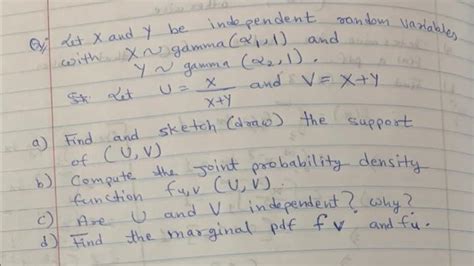 Q:- Let X and Y be independent random variables
with X ~ gamma (α₁,1) and
Y ~ gamma (α₂,1).
Let U = X/(X+Y) and V = X+Y
a) Find and sketch (draw) the support
of (U,V)
b) Compute the joint probability density
function fu,v (U,V).
c) Are U and V independent? why?
d) Find the marginal pdf fv and fu.